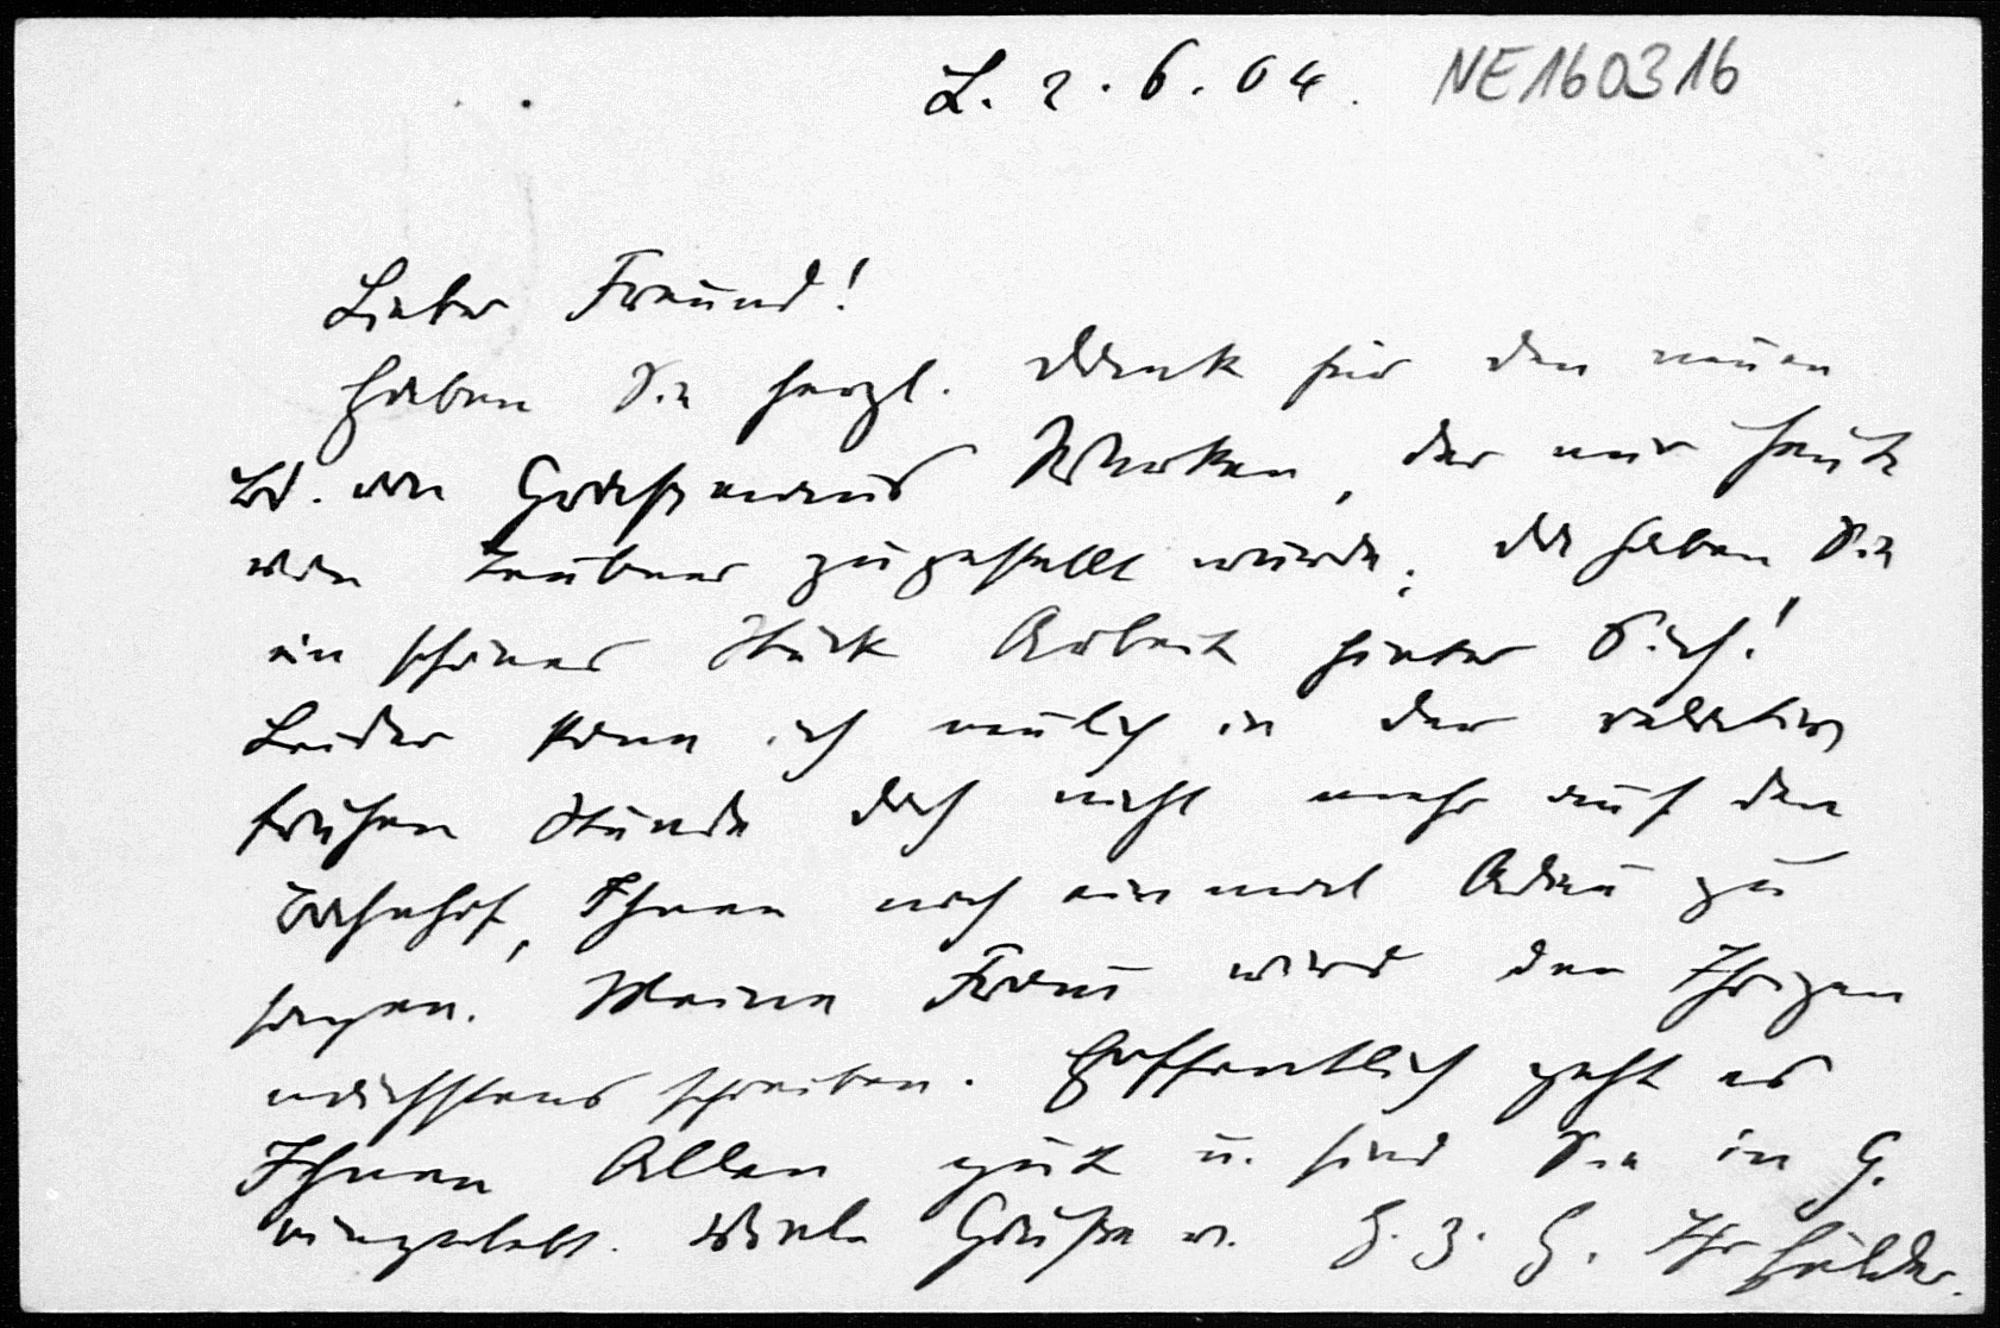 L. 2.6.04. NE160316
Lieber Freund!
Haben Sie herzl. Dank für den neuen
Bd. von Graßmanns Werken, der mir heute
von Teubner zugestellt wurde; da haben Sie
ein schönes Stück Arbeit hinter Sich!
Leider kam ich neulich in der relativ
frühen Stunde doch nicht mehr auf den
Bahnhof, Ihnen noch einmal Adieu zu
sagen. Meine Frau wird der Ihrigen
nächstens schreiben. Hoffentlich geht es
Ihnen Allen gut u. sind Sie in G.
eingelebt. Viele Grüße v. H. z. H. Ihr Hölder.